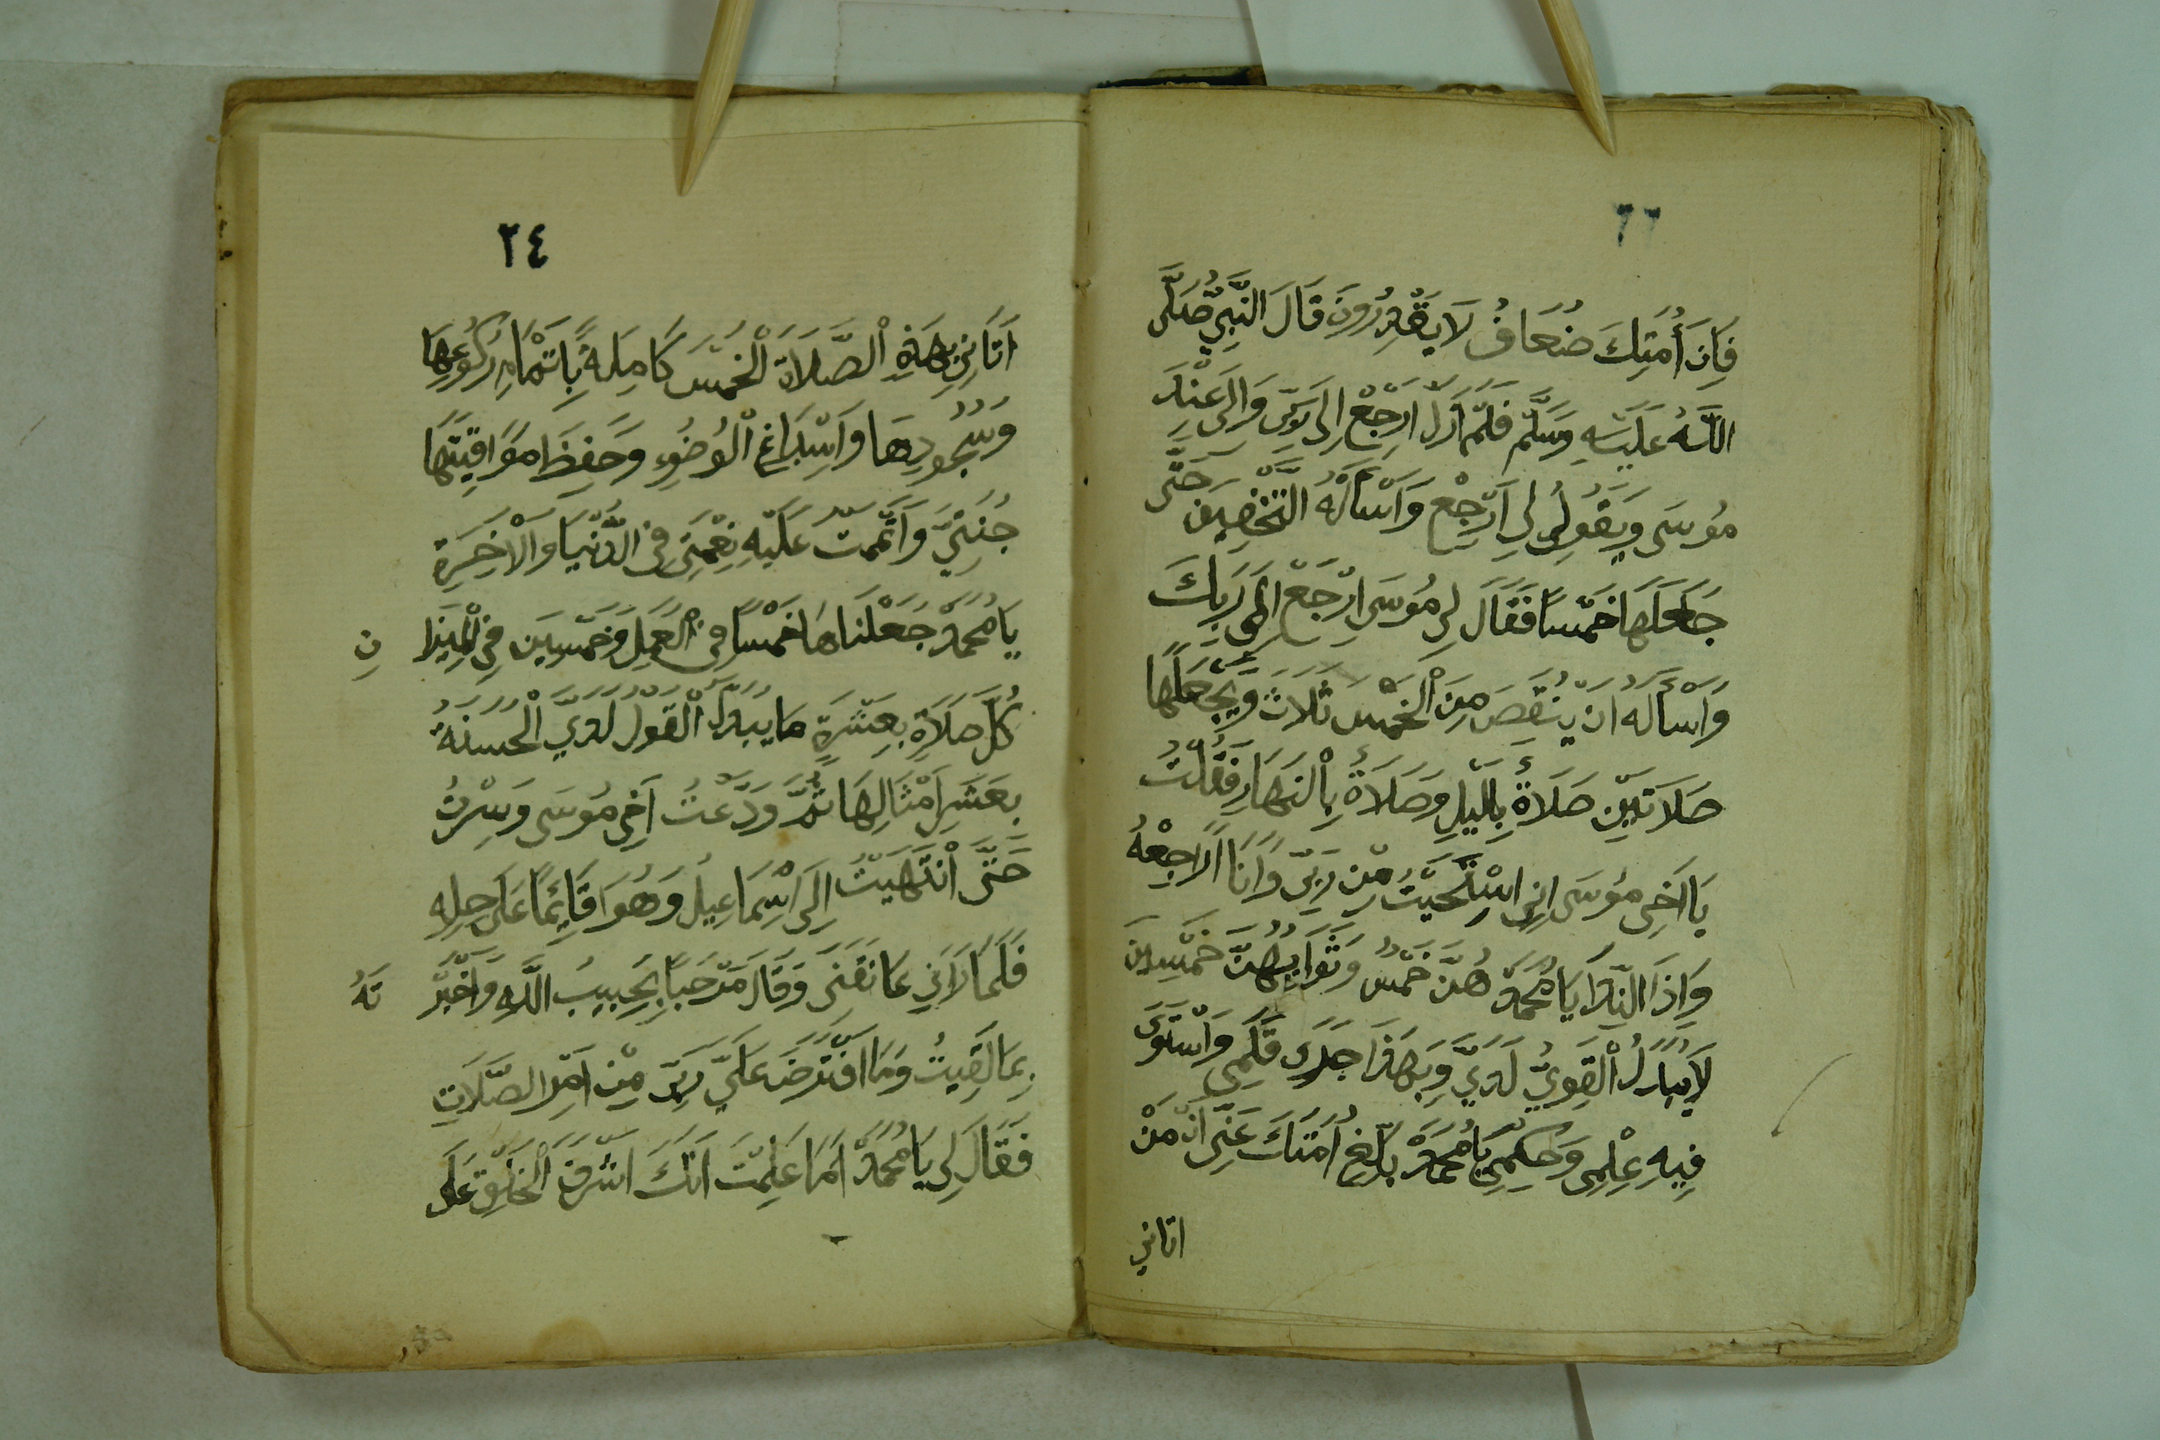 ٦٦
فَاِنَ أُمَتِكَ ضُعَافُ لَا يَقْدِرُونَ قَالَ النَّبِيّ صَلَّى
اللَّهُ عَلَيْهِ وَسَلَّمْ فَلَمْ اَزَلْ اَرْجِعْ اِلَى رَبِّى وَاِلَى عِنْدَ
مُوسَى وَيَقُولُ لِى اَرْجِعْ وَاسْأَلْهُ التَّخْفِيفَ حَتَّى
جَعَلَهَا خَمْسًا فَقَالَ لِى مُوسَى اِرْجَعْ اِلَى رَبِّكَ
وَاسْأَلَهُ اَنْ يَنْقُصَ مِنَ الْخَمْسَ ثَلَاثَ وَيَجْعَلْهَا
صَلَاتَيْنِ صَلَاةً بِالَّيْلِ وَصَلَاةً بِالنَهَارِ فَقُلْتُ
يَا اَخِى مُوسَى اِنِى اسْتَحَيْتُ مِنْ رَبِّى وَاَنَا اُرَاجِعْهُ
وَاِذَا النِّدَا يَا مُحَمَّدْ هُنَّ خَمْسُ وَثَوَابُهُنَّ خَمْسِينَ
لَا يُبَدَلُ الْقَوِلُ لَدَيَّ وَبِهَذَا جَرَى قَلَمِى وَاسْتَوَى
فِيهِ عِلْمِى وَحُكْمِى يَا مُحَمَّدْ بَلِّغِ اُمَتَكَ عَنِّى اَنْ مَنْ
اتانى
٢٤
اَتَانِى بِهَذِهِ الصَّلَاةَ الْخَمْسَ كَامِلَةً بِاِتْمَامِ رُكُوعِهَا
وَسُجُودِهَا وَاَسْبَاغِ الْوُضُوءِ وَحَفِظَ مَوَاقِيتَهَا
جُنَتِيَ وَاَتْمَمْتُ عَلَيْهِ نِعْمَتِى فِى الدُّنْيَا وَالْاَخِرَةِ
يَا مُحَمَّدْ جَعَلْنَاهَا خَمْسًا فِى الْعَمَلِ وَخَمْسِينَ فِى الْمِيزَا نِ
كُلَّ صَلَاةٍ بِعَشَرَةٍ مَا يُبَدَّلُ الْقَوْلُ لَدَيَّ الْحَسَنَةُ
بِعَشَرِ اَمْثَالِهَا ثُمَّ وَدَّعْتُ اَخِى مُوسَى وَسِرْتُ
حَتَّى اَنْتَهَيْتُ اِلَى اِسْمَاعِيلُ وَهُوَا قَائِمًا عَلَى حَالِهِ
فَلَمَا رَاَنِي عَانَقَنِى وَقَالَ مَرْحَبًا بِحَبِيبُ اللَّهِ وَاَخْبَرْ تَهُ
بِمَا لَقِيتُ وَمَا افْتَرَضَ عَلَيَّ رَبِّى مِنْ اَمْرِ الصَّلَاتِ
فَقَالَ لِى يَا مُحَمَّدْ اَمَا عَلِمْتَ اَنَّكَ اَشْرَفَ الْخَلْقِ عَلَى